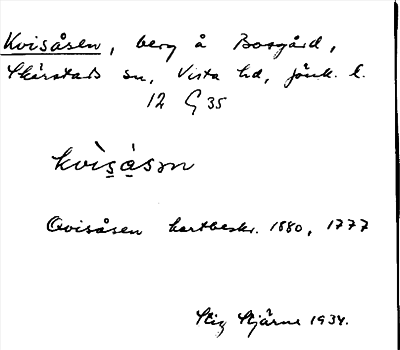 Kvisåsen, berg å Bosgård,
Skärstads sn, Vista hd, Jönk. l.
12 G 35
kvìs̲ àsən
Qvisåsen kartbeskr. 1880, 1777
Stig Stjärne 1934.